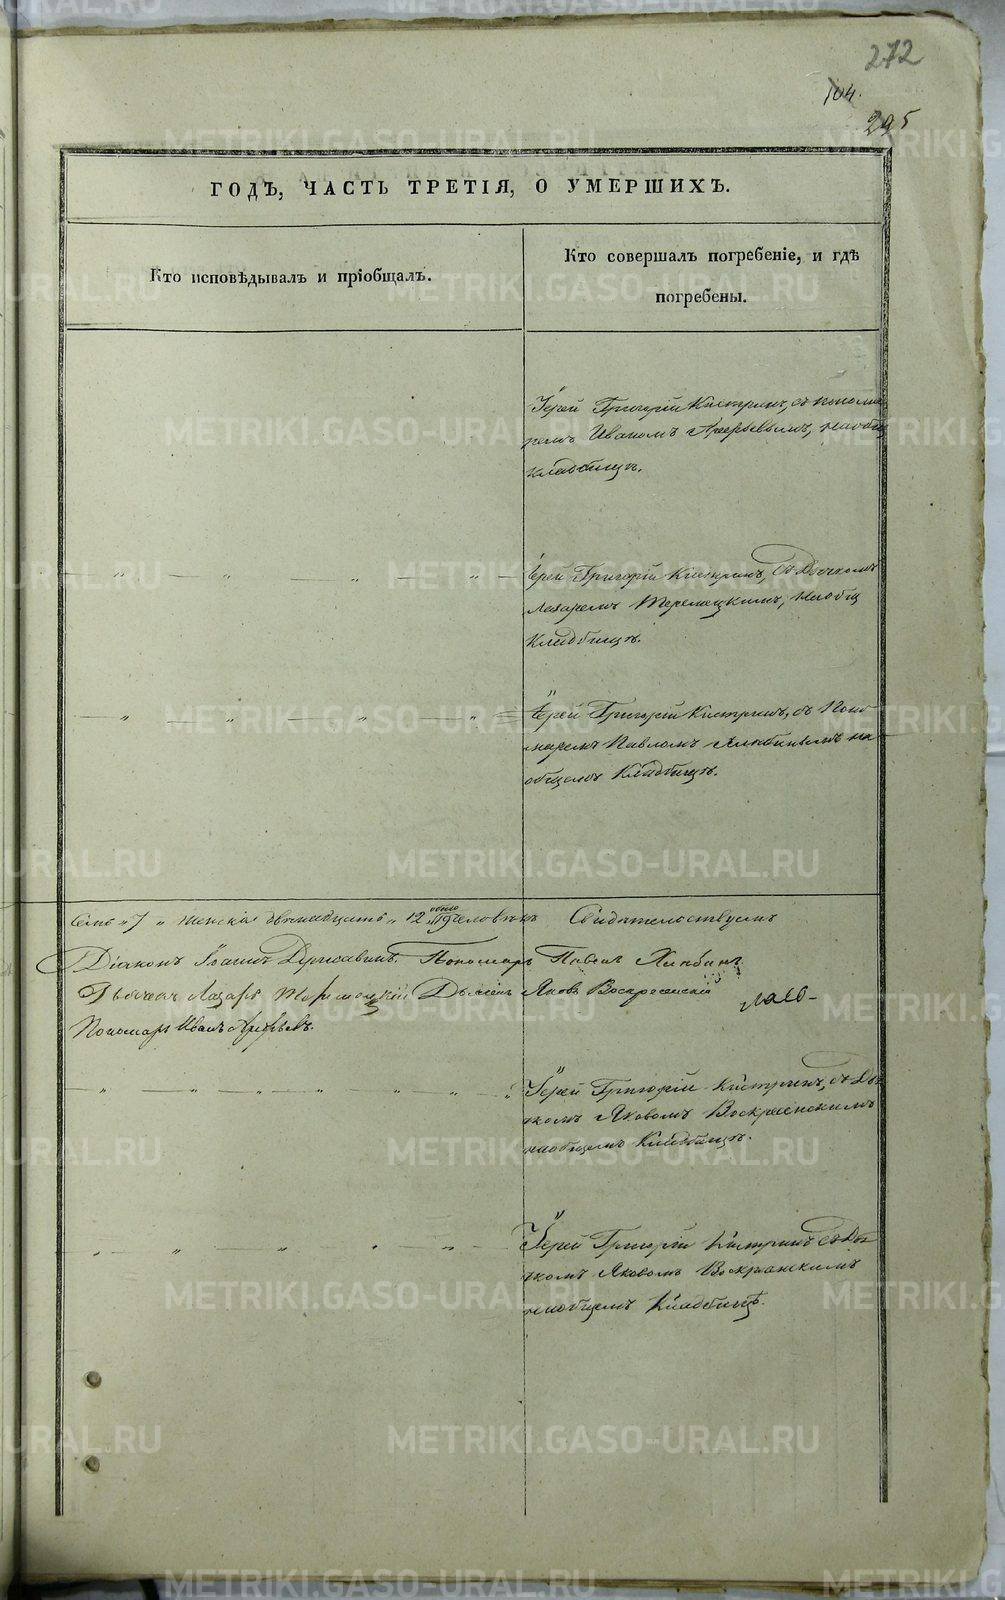 272
104.
295
ГОДЪ, ЧАСТЬ ТРЕТІЯ, О УМЕРШИХЪ.
Кто исповѣдывалъ и пріобщалъ.
Кто совершалъ погребеніе, и гдѣ
погребены.
Іерей Григорій Кистринъ, съ понома
ремъ Иваномъ Арефьевымъ, на общ
кладбищѣ.
Іерей Григорій Кистринъ, съ Дьячкомъ
Лазаремъ, на общ
Кладбищѣ.
Іерей Григорій Кистринъ, съ Поно
маремъ Павломъ на
общемъ Кладбищѣ.
семь „7„ женска двенадцать „12 обоего 19 человѣкъ Свидѣтельствуемъ
Діаконъ Іоаннъ Державинъ. Пономарь Павелъ
Дьячекъ Лазарь Дьячекъ Яковъ Воскресенскій
Пономарь Иванъ Арефьевъ.
Іерей Григорій Кистринъ, съ Дья
чкомъ Яковомъ Воскресенскимъ
на общемъ Кладбищѣ.
Іерей Григорій Кистринъ съ Дья
чкомъ Яковомъ Воскресенскимъ
на общемъ Кладбищѣ.
METRIKI.GASO-URAL.RU